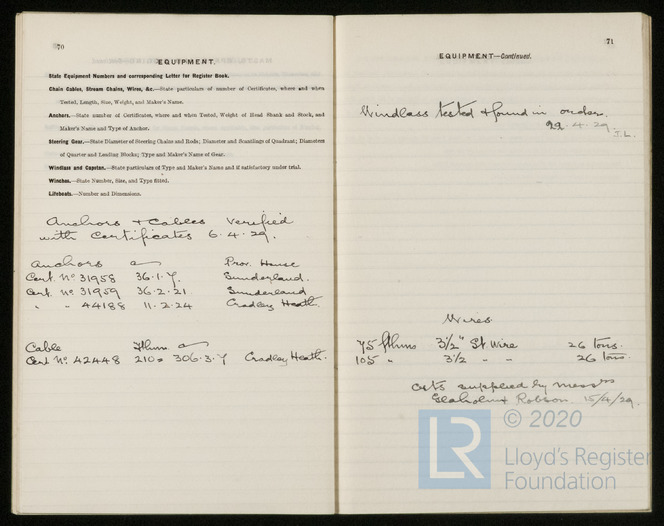 70
EQUIPMENT.
State Equipment Numbers and corresponding Letter for Register Book.
Chain Cables, Stream Chains, Wires, &c.—State particulars of number of Certificates, where and when
Tested, Length, Size, Weight, and Maker's Name.
Anchors.—State number of Certificates, where and when Tested, Weight of Head Shank and Stock, and
Maker's Name and Type of Anchor.
Steering Gear.—State Diameter of Steering Chains and Rods; Diameter and Scantlings of Quadrant; Diameters
of Quarter and Leading Blocks; Type and Maker's Name of Gear.
Windlass and Capstan.—State particulars of Type and Maker's Name and if satisfactory under trial.
Winches.—State Number, Size, and Type fitted.
Lifeboats.—Number and Dimensions.
Anchors + Cables Verified
with Certificates 6.4.29.
Anchors Prov. House
Cert. No 31958 36.1.7. Sunderland.
Cert. No 31959 36.2.21. Sunderland
" " 44188 11.2.24 Cradley Heath.
Cable Fthms
Cert No. 42448 210 306.3.7 Cradley Heath.
71
EQUIPMENT—Continued.
Windlass tested & found in order.
22.4.29. J.L.
Wires.
75 fthms 3½" St Wire 26 tons.
105 " 3½ " " 26 tons.
supplied by Messrs
Glaholm & Robson. 15/4/29.
LR
© 2020
Lloyd's Register
Foundation